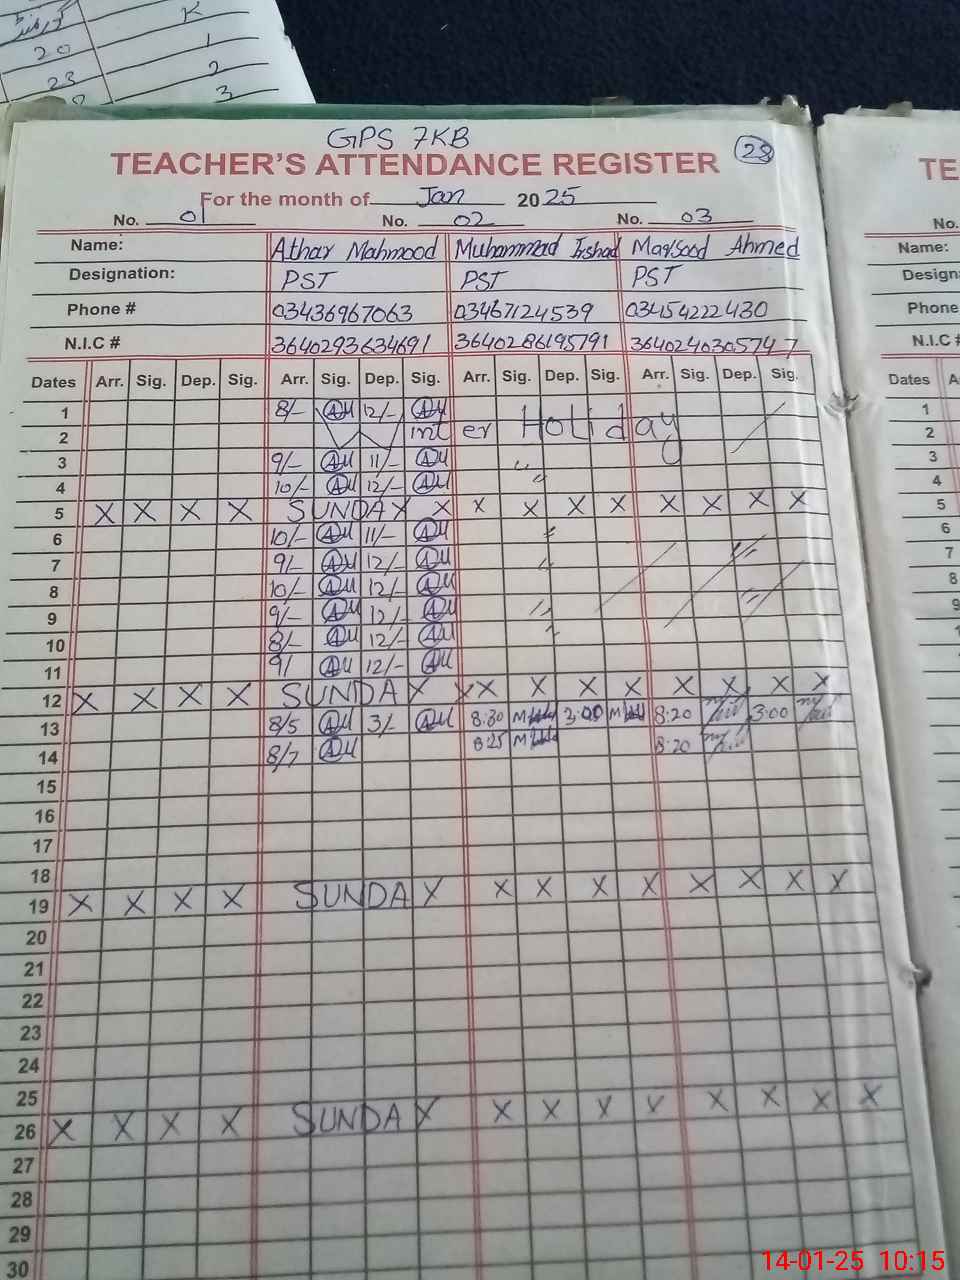 K
20 1
23 2
3
GPS 7KB
TEACHER'S ATTENDANCE REGISTER 28
For the month of Jan 2025
No. 01 No. 02 No. 03
Name: Athar Mahmood Muhammad Irshad Maqsood Ahmed
Designation: PST PST PST
Phone # 03436967063 03467124539 03454222430
N.I.C # 3640293634691 3640286195791 3640240305747
Dates Arr. Sig. Dep. Sig. Arr. Sig. Dep. Sig. Arr. Sig. Dep. Sig. Arr. Sig. Dep. Sig.
1 8/- AM 12/- AM
2 Winter Holiday
3 9/- AM 11/- AM "
4 10/- AM 12/- AM "
5 X X X X SUNDAY X X X X X X X X X
6 10/- AM 11/- AM "
7 9/- AM 12/- AM " "
8 10/- AM 12/- AM
9 9/- AM 12/- AM " "
10 8/- AM 12/- AM "
11 9/ AM 12/- AM
12 X X X X SUNDAY X X X X X X X X X
13 8/5 AM 3/- AM 8:30 3:00 8:20 3:00
14 8/7 AM 8:25 8:20
15
16
17
18
19 X X X X SUNDAY X X X X X X X X
20
21
22
23
24
25
26 X X X X SUNDAY X X X X X X X X
27
28
29
30
TE
No.
Name:
Design
Phone
N.I.C #
Dates A
1
2
3
4
5
6
7
8
9
10
11
12
13
14-01-25 10:15